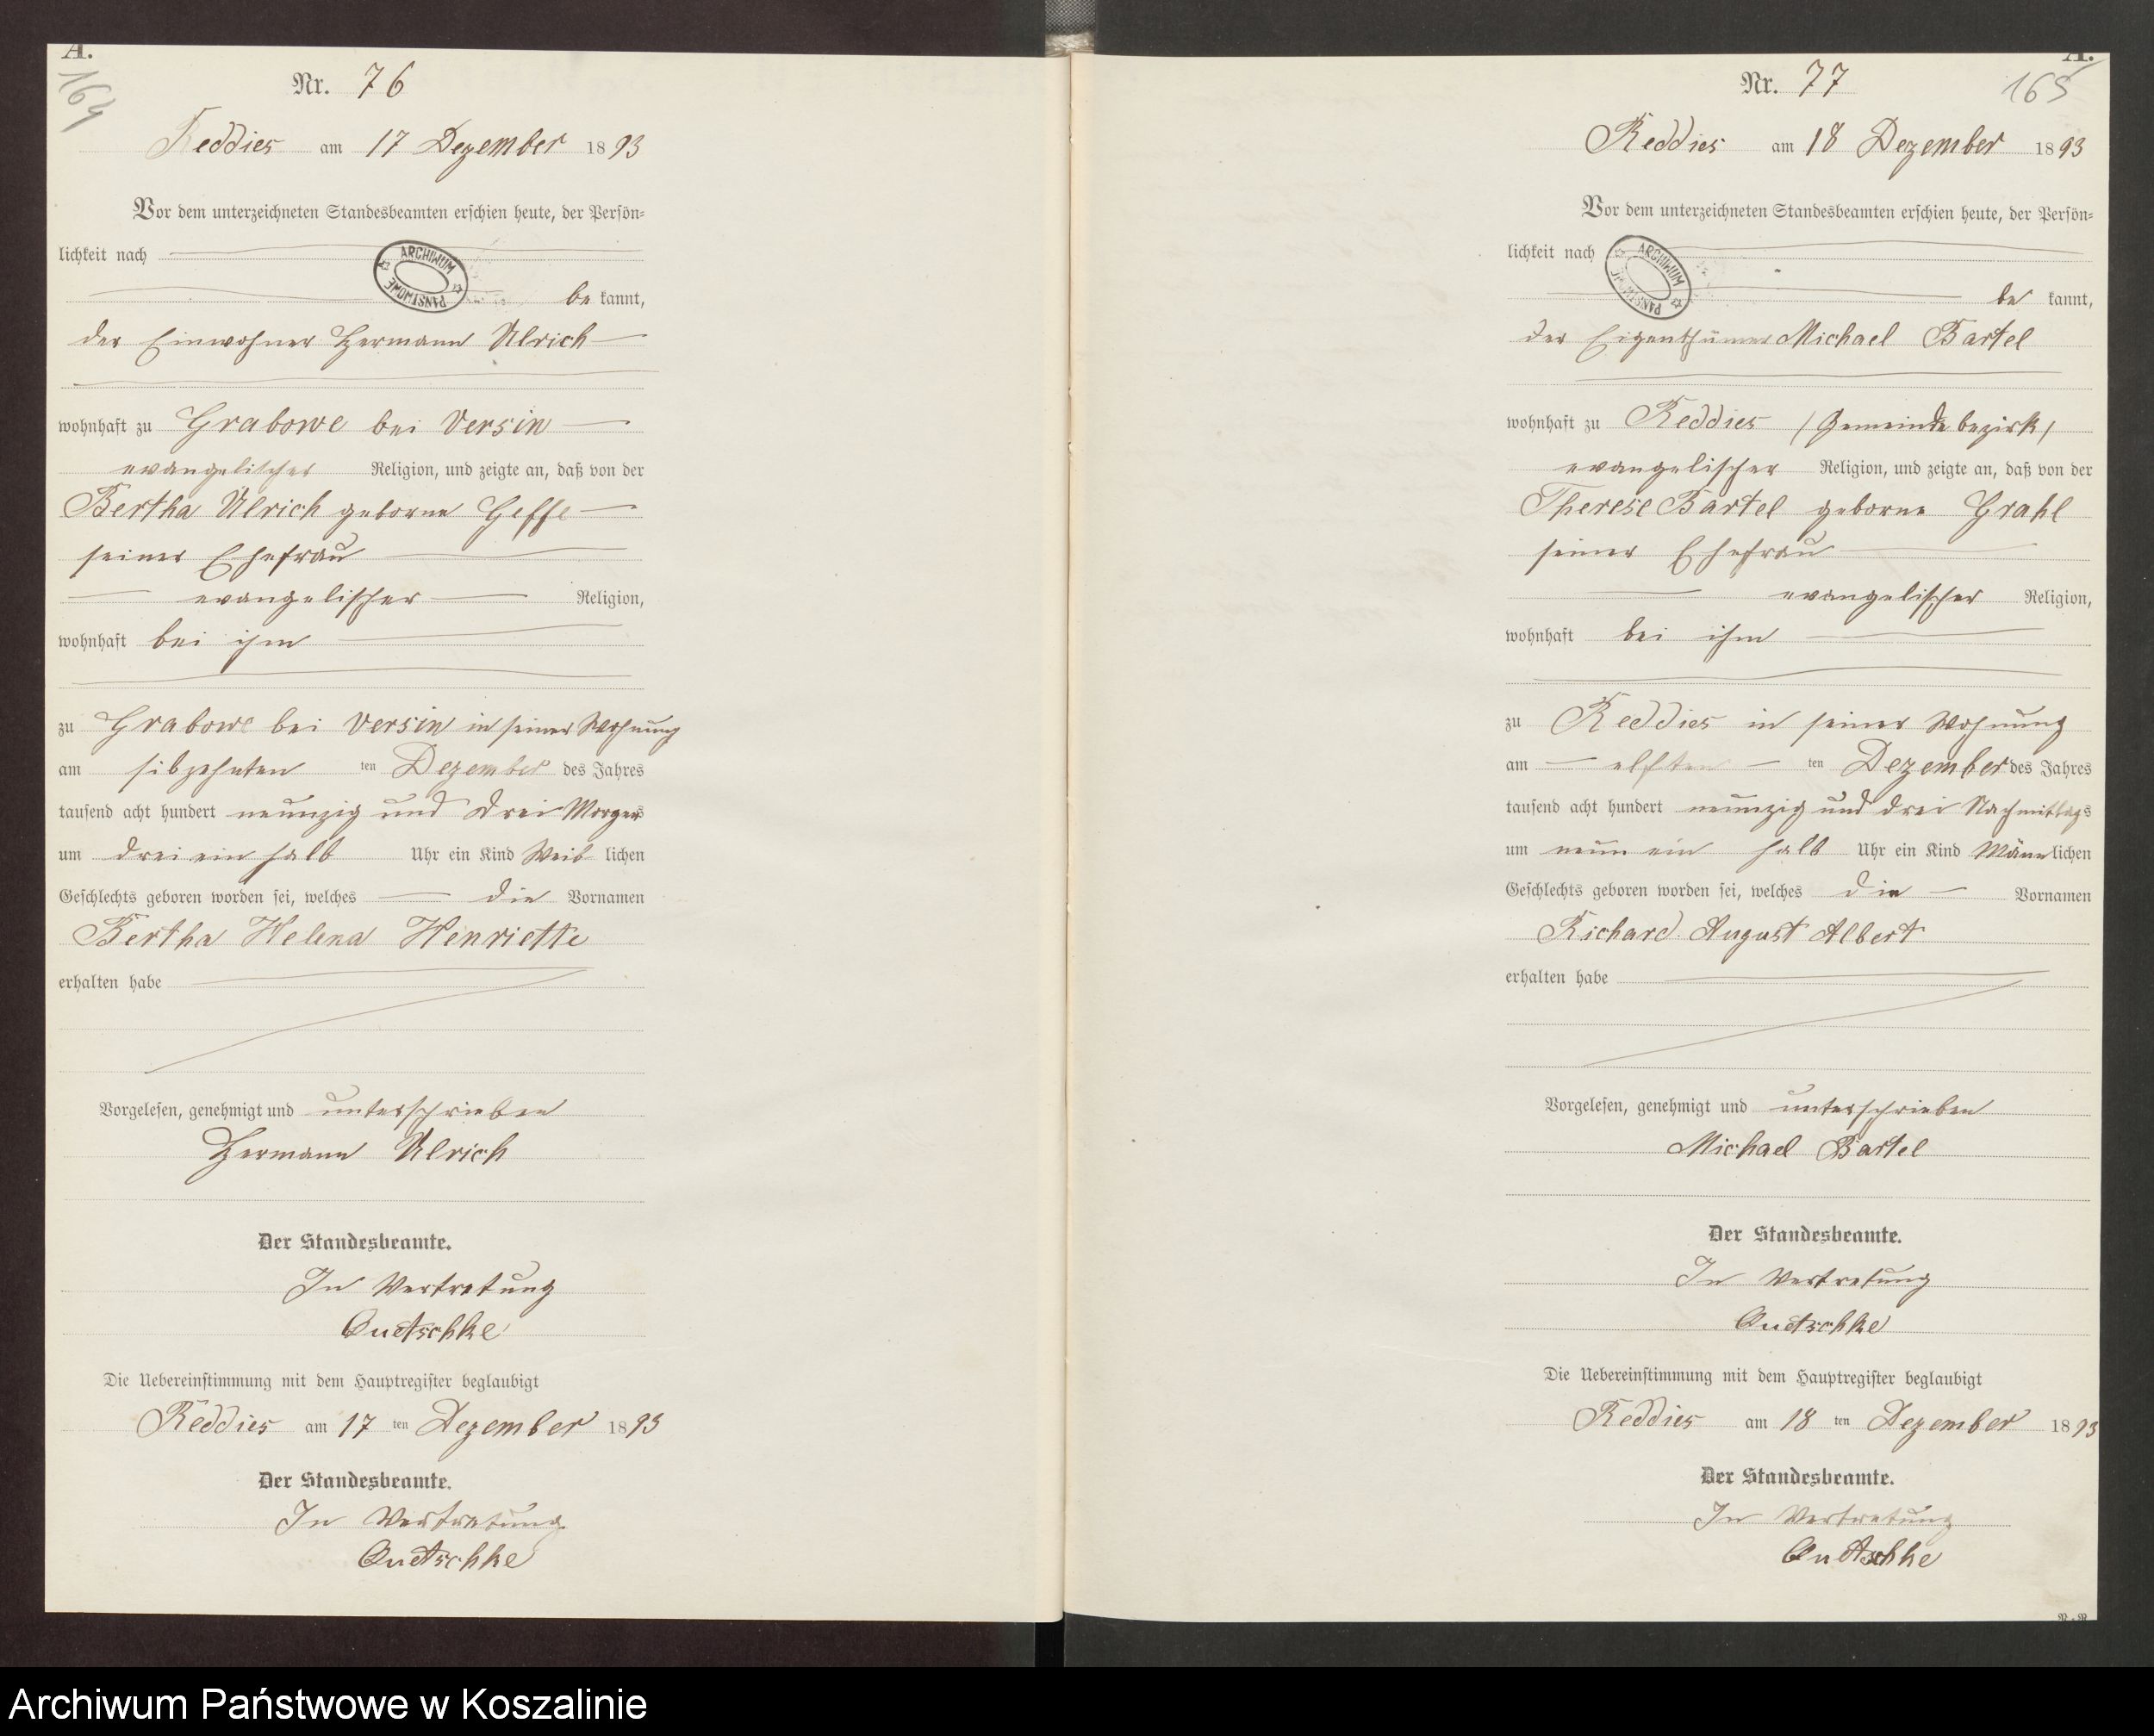 A.
164
Nr. 76
Reddies am 17 Dezember 1893
Vor dem unterzeichneten Standesbeamten erschien heute, der Persön-
lichkeit nach
ARCHIWUM PAŃSTWOWE
be kannt,
der Einwohner Hermann Ulrich
wohnhaft zu Grabowe bei Versin
evangelischer Religion, und zeigte an, daß von der
Bertha Ulrich geborne Geffe
seiner Ehefrau
evangelischer Religion,
wohnhaft bei ihm
zu Grabowe bei Versin in seiner Wohnung
am sibzehnten ten Dezember des Jahres
tausend acht hundert neunzig und drei Morgens
um drei ein halb Uhr ein Kind Weib lichen
Geschlechts geboren worden sei, welches die Vornamen
Bertha Helena Henriette
erhalten habe
Vorgelesen, genehmigt und unterschrieben
Hermann Ulrich
Der Standesbeamte.
In Vertretung
Quetschke
Die Uebereinstimmung mit dem Hauptregister beglaubigt
Reddies am 17 ten Dezember 1893
Der Standesbeamte.
In Vertretung
Quetschke
A.
165
Nr. 77
Reddies am 18 Dezember 1893
Vor dem unterzeichneten Standesbeamten erschien heute, der Persön-
lichkeit nach
ARCHIWUM PAŃSTWOWE
be kannt,
der Eigenthümer Michael Bartel
wohnhaft zu Reddies /Gemeindebezirk/
evangelischer Religion, und zeigte an, daß von der
Therese Bartel geborne Grahl
seiner Ehefrau
evangelischer Religion,
wohnhaft bei ihm
zu Reddies in seiner Wohnung
am elften ten Dezember des Jahres
tausend acht hundert neunzig und drei Nachmittags
um neun ein halb Uhr ein Kind Männlichen
Geschlechts geboren worden sei, welches die Vornamen
Richard August Albert
erhalten habe
Vorgelesen, genehmigt und unterschrieben
Michael Bartel
Der Standesbeamte.
In Vertretung
Quetschke
Die Uebereinstimmung mit dem Hauptregister beglaubigt
Reddies am 18 ten Dezember 1893
Der Standesbeamte.
In Vertretung
Quetschke
Archiwum Państwowe w Koszalinie